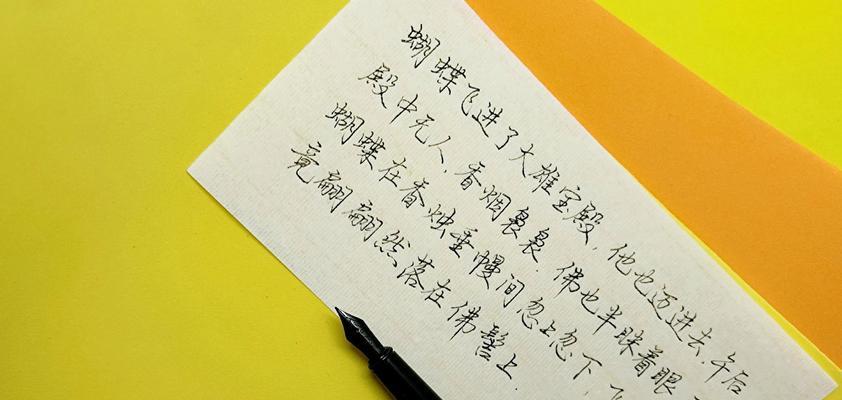 蝴蝶飞进了大雄宝殿，他也迈进去，午后
殿中无人，香烟袅袅，佛也半眯着眼
蝴蝶在香烛垂幔间忽上忽下，
竟翩翩然落在佛髻上．